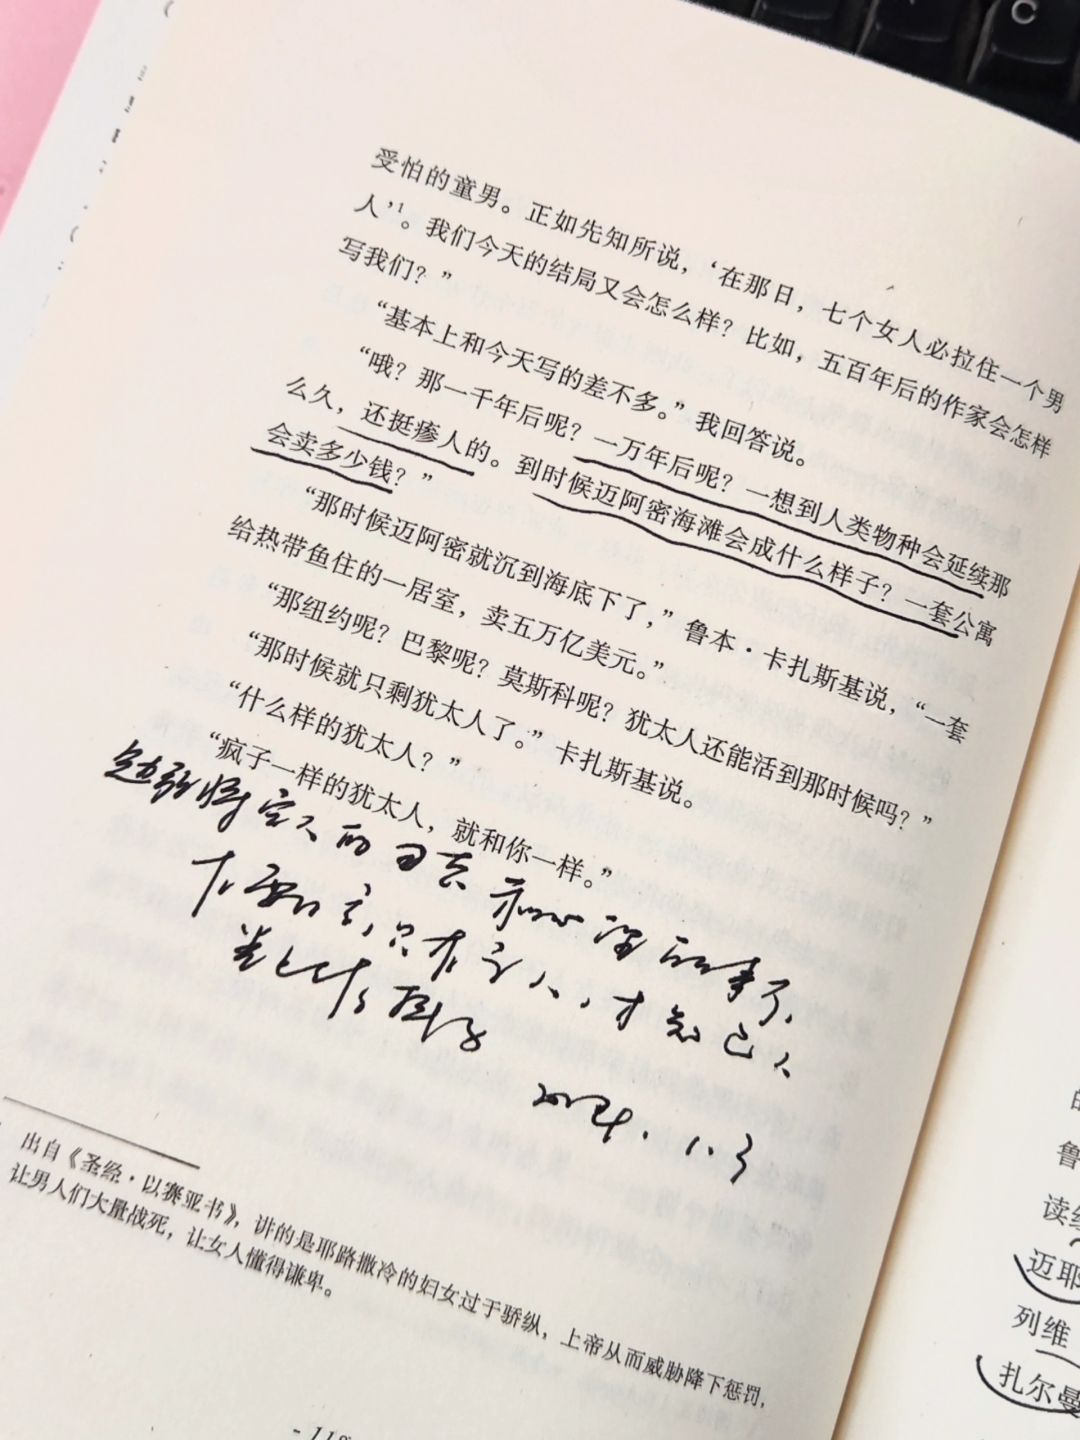 受怕的童男。正如先知所说，‘在那日，七个女人必拉住一个男
人’¹。我们今天的结局又会怎么样？比如，五百年后的作家会怎样
写我们？”
“基本上和今天写的差不多。”我回答说。
“哦？那一千年后呢？一万年后呢？一想到人类物种会延续那
么久，还挺瘆人的。到时候迈阿密海滩会成什么样子？一套公寓
会卖多少钱？”
“那时候迈阿密就沉到海底下了，”鲁本·卡扎斯基说，“一套
给热带鱼住的一居室，卖五万亿美元。”
“那纽约呢？巴黎呢？莫斯科呢？犹太人还能活到那时候吗？”
“那时候就只剩犹太人了。”卡扎斯基说。
“什么样的犹太人？”
“疯子一样的犹太人，就和你一样。”
只有
才
1.3
出自《圣经·以赛亚书》，讲的是耶路撒冷的妇女过于骄纵，上帝从而威胁降下惩罚，
让男人们大量战死，让女人懂得谦卑。
鲁
读
迈耶
列维
扎尔曼